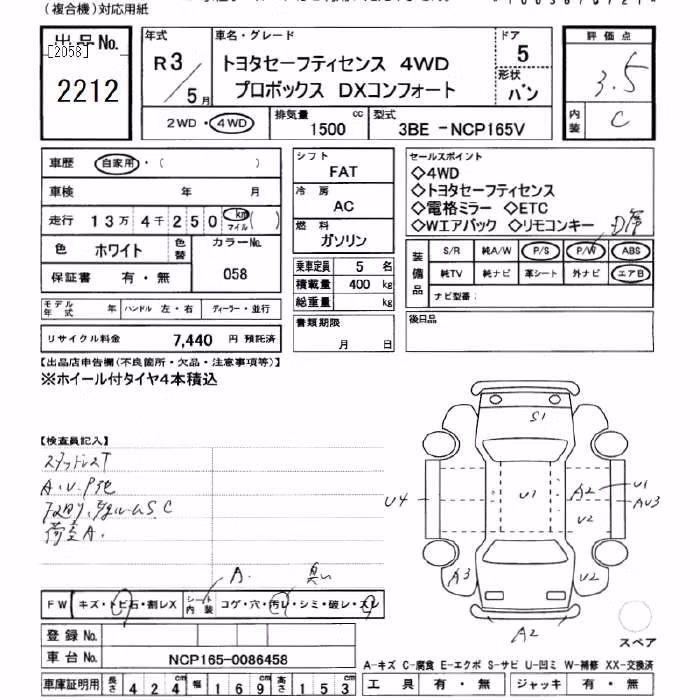 (複合機)対応用紙
出品No.
[2058]
2212
年式
R3/5月
車名・グレード
トヨタセーフティセンス 4WD
プロボックス DXコンフォート
ドア
5
形状
バン
評価点
3.5
内装
C
2WD・4WD
排気量
1500 cc
型式
3BE-NCP165V
車歴
自家用・( )
車検 年 月
走行 13万4千250 km マイル( )
色 ホワイト
色替
カラーNo.
058
保証書 有・無
モデル年式 年
ハンドル 左・右
ディーラー・並行
リサイクル料金 7,440 円 預託済
シフト
FAT
冷房
AC
燃料
ガソリン
乗車定員 5 名
積載量 400 kg
総重量 kg
書類期限
月 日
セールスポイント
◇4WD
◇トヨタセーフティセンス
◇電格ミラー ◇ETC
◇Wエアバック ◇リモコンキー
装備品
S/R 純A/W P/S P/W ABS
純TV 純ナビ 革シート 外ナビ エアB
ナビ型番:
後日品
【出品店申告欄(不良箇所・欠品・注意事項等)】
※ホイール付タイヤ4本積込
【検査員記入】
スタッドレスT
A.U.P他
荷室A.
A.
FW
キズ・トビ石・割レX
シート内装
コゲ・穴・汚レ・シミ・破レ・スレ
登録No.
車台No.
NCP165-0086458
車庫証明用
長さ 424cm 幅 169cm 高さ 153cm
S1
U4
U1
A2
U2
U1
AU3
A3
U2
A2
スペア
A-キズ C-腐食 E-エクボ S-サビ U-凹ミ W-補修 XX-交換済
工具 有・無
ジャッキ 有・無